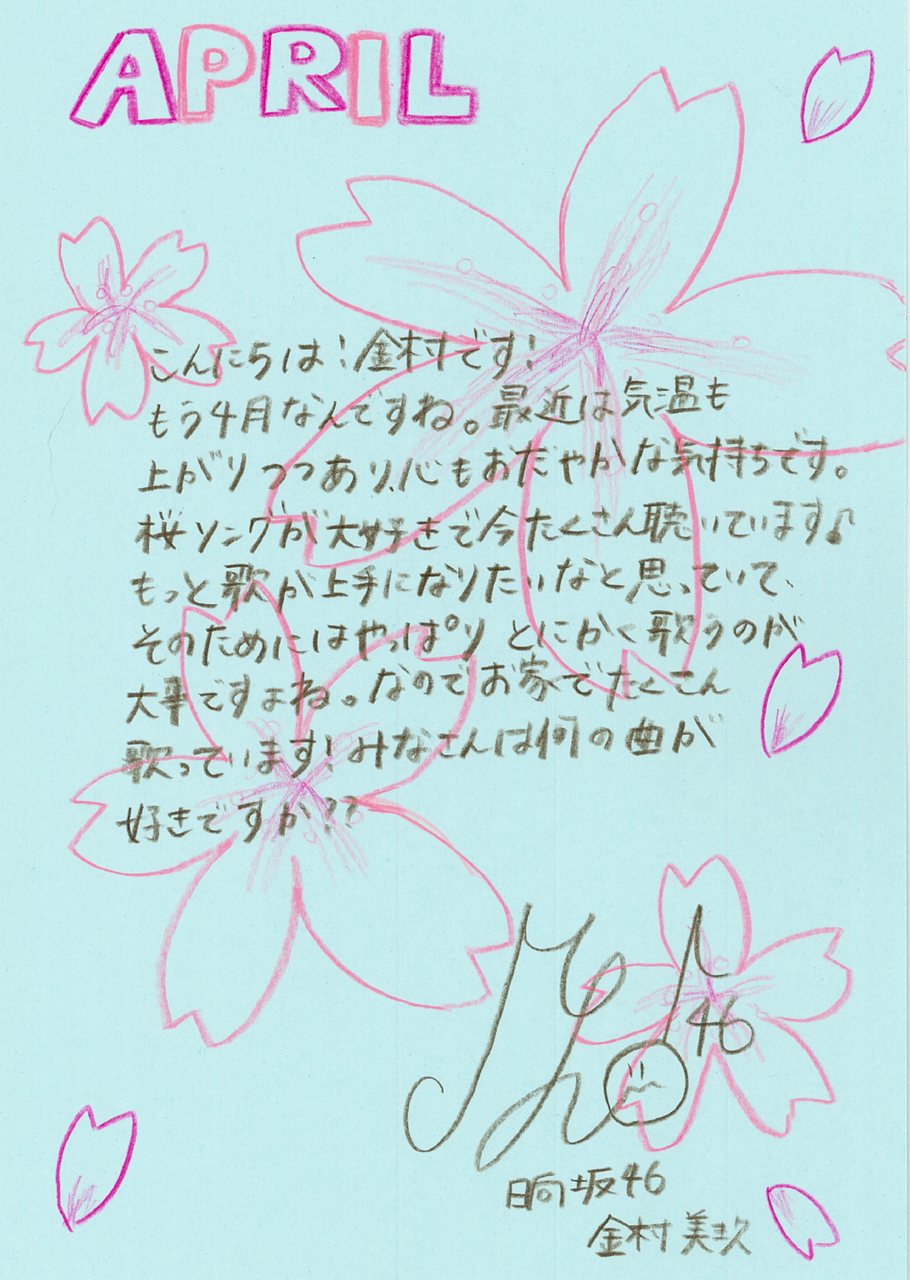 APRIL
こんにちは！金村です！
もう4月なんですね。最近は気温も
上がりつつあり、心もおだやかな気持ちです。
桜ソングが大好きで今たくさん聴いています♪
もっと歌が上手になりたいなと思っていて、
そのためにはやっぱり とにかく歌うのが
大事ですよね。なのでお家でたくさん
歌っています！みなさんは何の曲が
好きですか？？
46
日向坂46
金村美玖